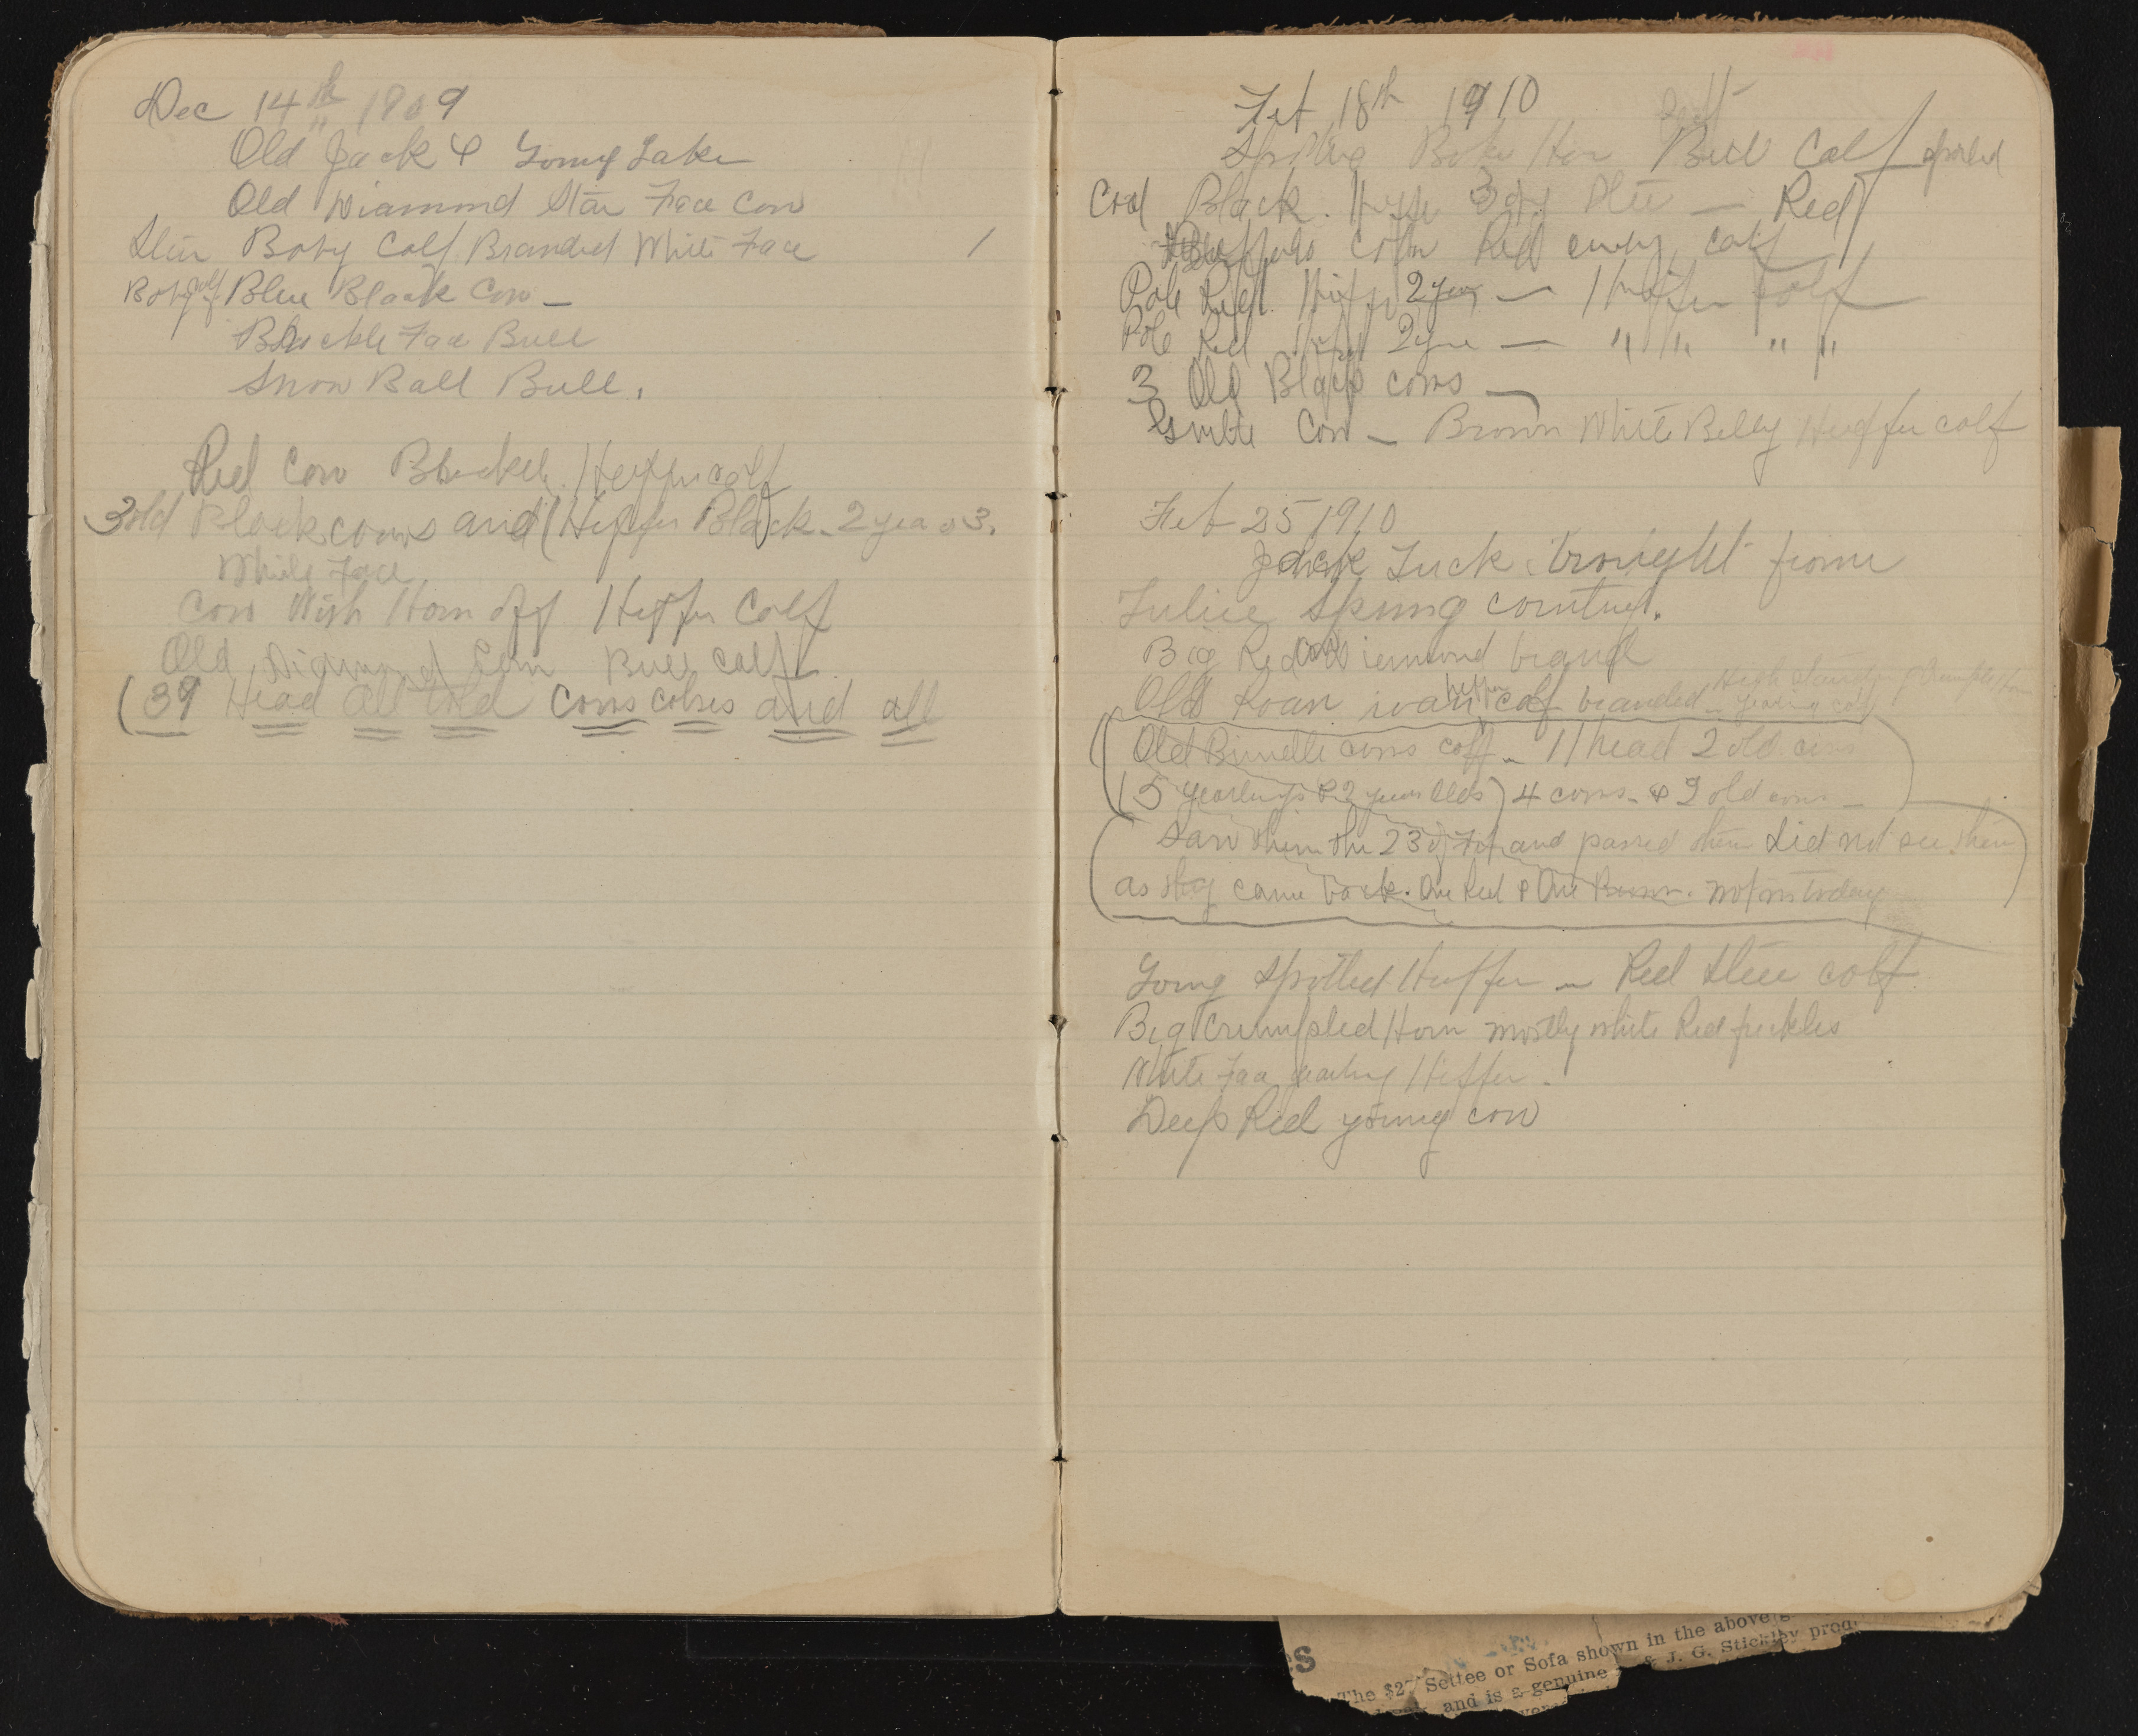 Dec 14th 1909
Old Jack & Young Jake
Old Diamond Star Face Cow
Steer Baby Calf Branded White Face 1
Baby calf Blue Black Cow —
Face Bull
Snow Ball Bull.
Red Cow Heiffer calf
3 old Black cows and (Heiffer Black. 2 years 3.
White Face
Cow With Horn off Heiffer Calf
Old Diamond Bull calf
(39 Head all told cows calves and all
Feb 18th 1910
Horn Bull Calf spotled
Coal Black. 3 — Red
Red calf
Pole Red. Heiffer 2 year — 1 heiffer calf
Pole Red 2 year — " " " "
3 Old Black cows —
Cow — Brown White Belly Heiffer calf
Feb 25 1910
Jack Tuck. brought from
Spring country.
Big Red Cow brand
Old Roan heiffer calf branded — yearling calf
(Old Brindle cows calf — 11 head 2 old cows
(5 yearlings & 2 years olds) 4 cows — & 2 old cows —
Saw them the 23 of Feb and passed them did not see them
as they came back. One Red & One Brown. not in today
Young Spotled Heiffer — Red Steer calf
Big Crumpled Horn mostly white Red freckles
White Face yearling Heiffer.
Deep Red young cow
es
The $27 Settee or Sofa shown in the above
and is a genuine & J. G. Stickley